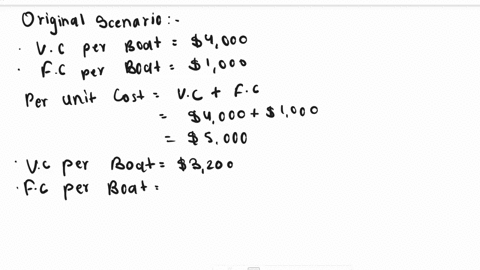 Original Scenario:-
· V.C per Boat = $4,000
· F.C per Boat = $1,000
Per unit Cost = V.C + F.C
= $4,000 + $1,000
= $5,000
· V.C per Boat = $3,200
· F.C per Boat =